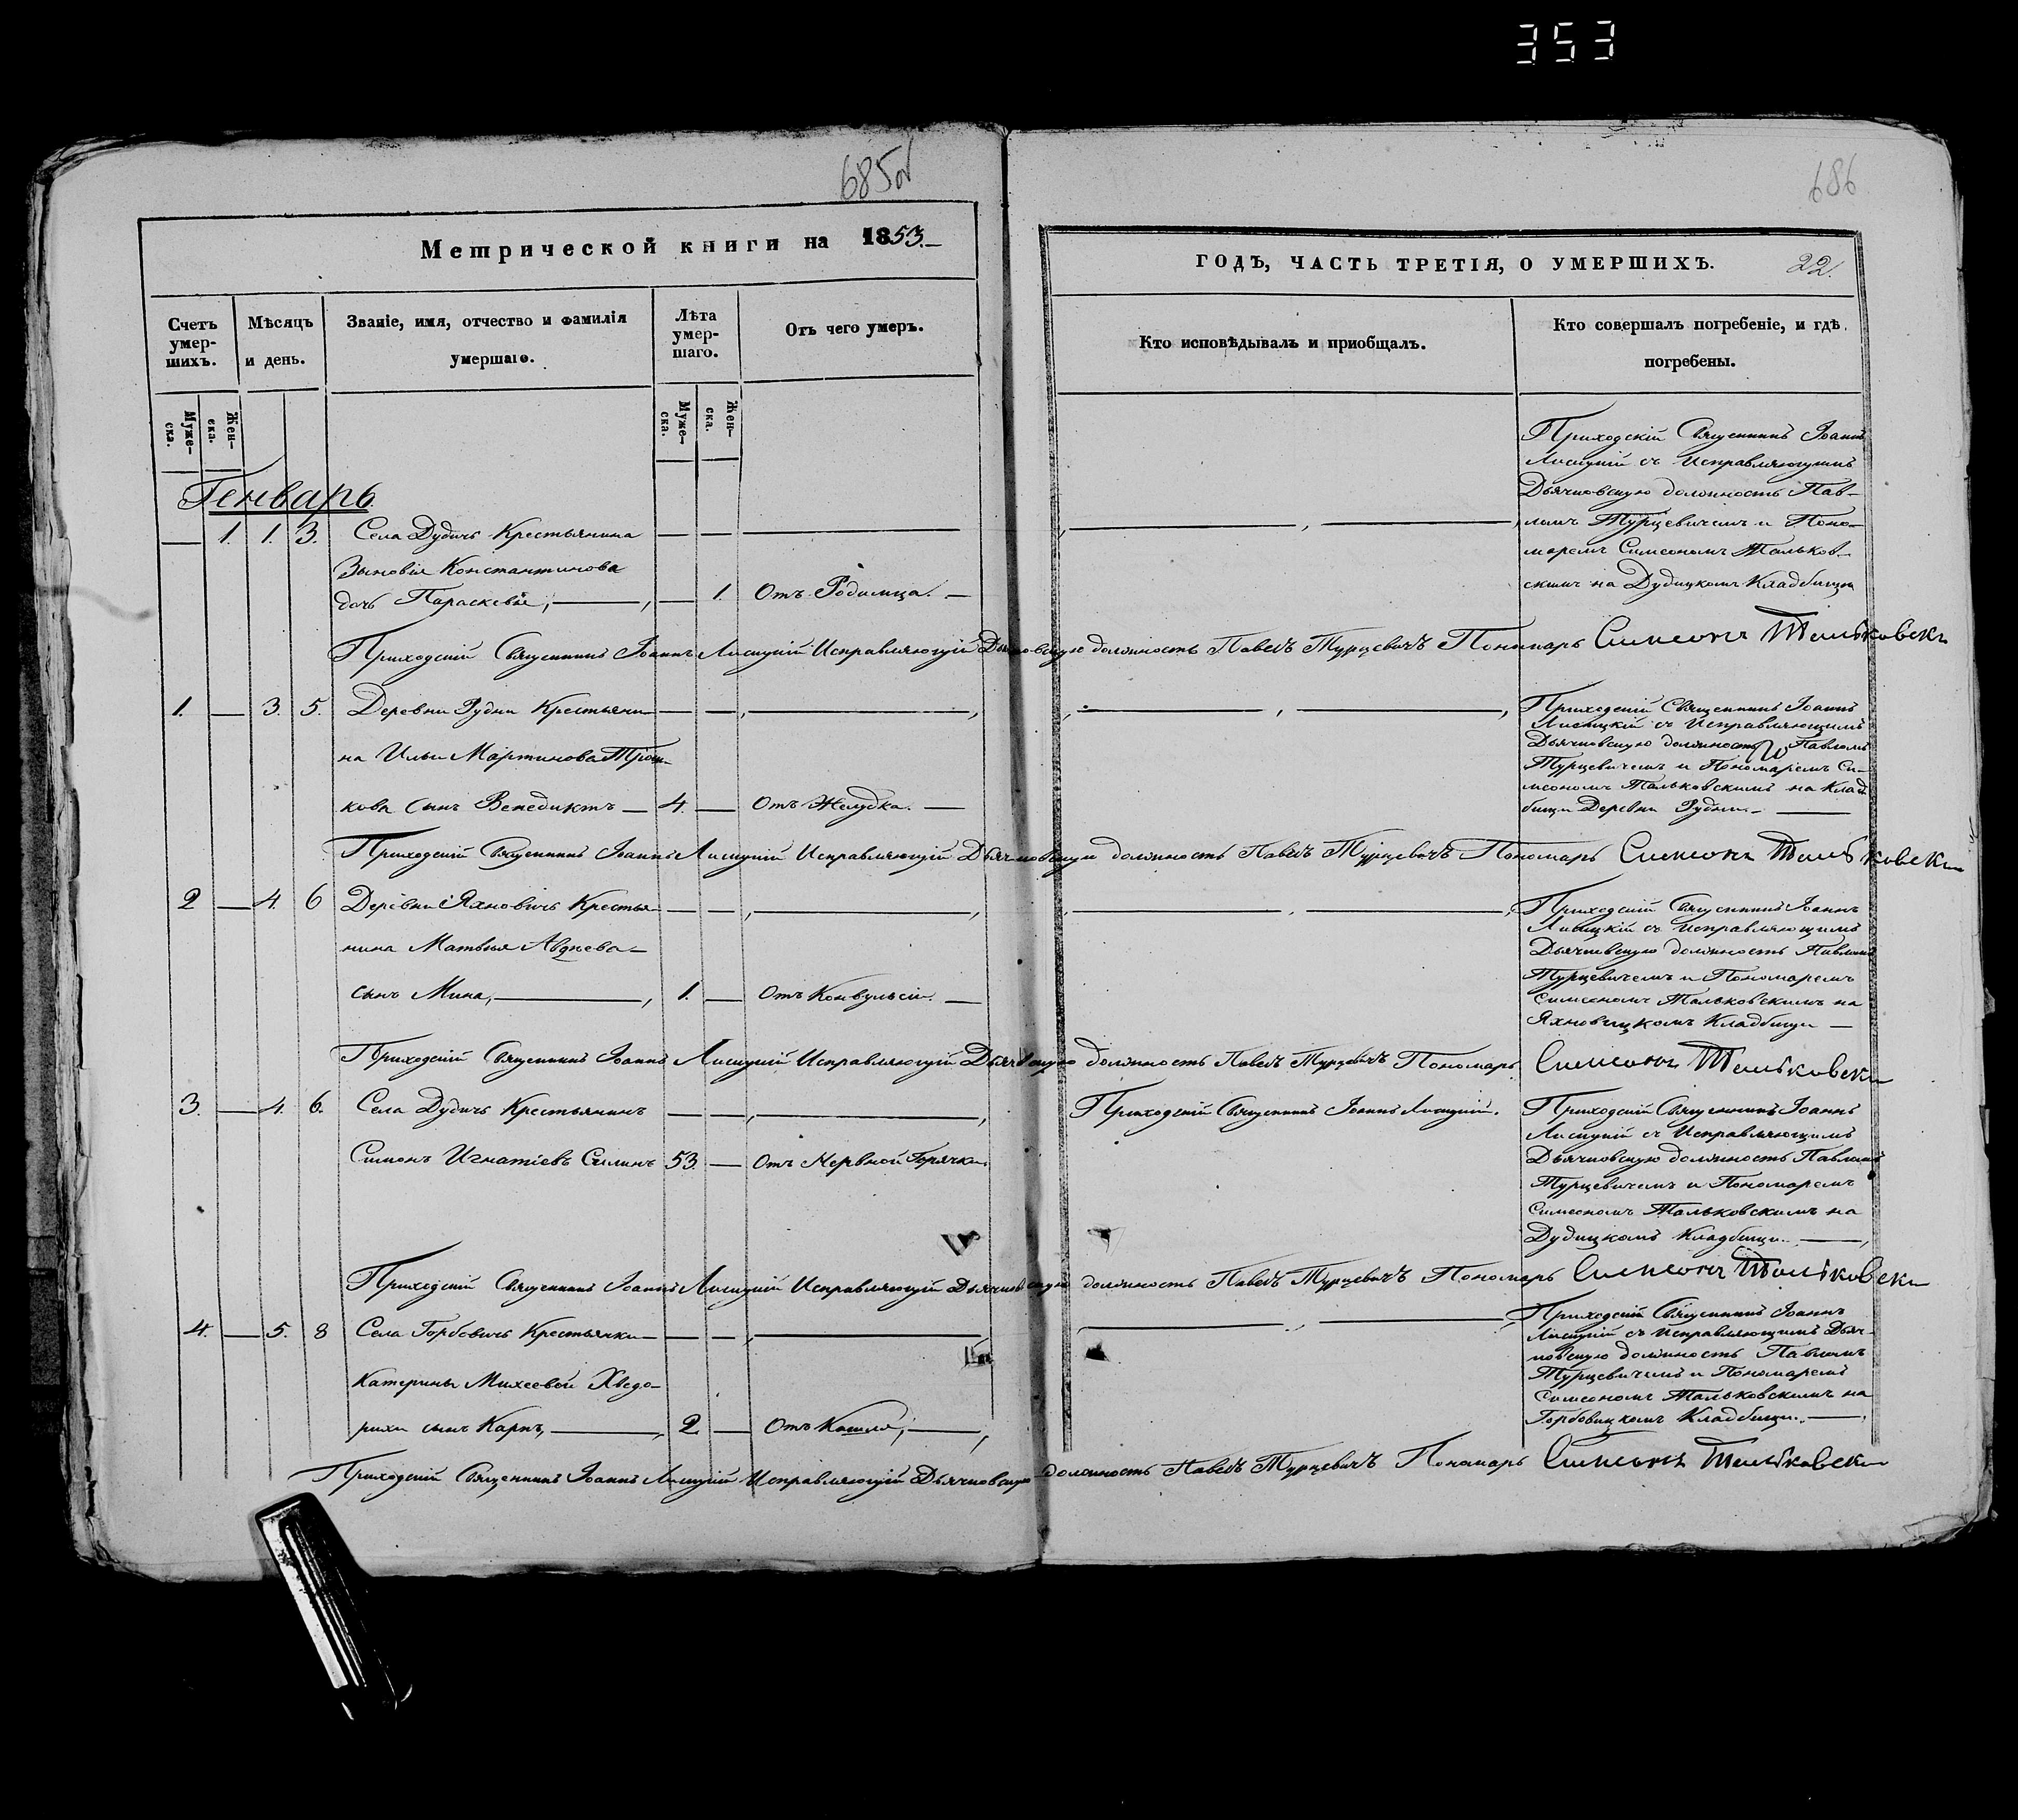 353
685об
686
Метрической книги на 1853.
ГОДЪ, ЧАСТЬ ТРЕТІЯ, О УМЕРШИХЪ. 22.
Счетъ умер-
шихъ.
Мѣсяцъ
и день.
Званіе, имя, отчество и фамилія
умершаго.
Лѣта
умер-
шаго.
Отъ чего умеръ.
Кто исповѣдывалъ и пріобщалъ.
Кто совершалъ погребеніе, и гдѣ
погребены.
Муже-
ска.
Жен-
ска.
Муже-
ска.
Жен-
ска.
Генварь
1. 1. 3. Села Дудичь Крестьянина
Зыновія Константинова
дочь Параскевіе, 1. Отъ Родимца.
Приходскій Священникъ Іоаннъ
Лисицкій съ Исправляющимъ
Дьячковскую должность Пав-
ломъ Турцевичемъ и Поно-
маремъ Симеономъ Тальков-
скимъ на Дудицкомъ Кладбищи
Приходскій Священникъ Іоаннъ Лисицкій Исправляющій Дьячковскую должность Павелъ Турцевичъ Пономарь Симеонъ Тальковски
1. 3. 5. Деревни Рудни Крестьяни-
на Ильи Мартинова
кова Сынъ Венедиктъ 4. Отъ Желудка.
Приходскій Священникъ Іоаннъ
Лисицкій съ Исправляющимъ
Дьячковскую должность Павломъ
Турцевичемъ и Пономаремъ Си-
меономъ Тальковскимъ на Клад
бищи Деревни Рудни
Приходскій Священникъ Іоаннъ Лисицкій Исправляющій Дьячковскую должность Павелъ Турцевичъ Пономарь Симеонъ Тальковски
2 4. 6 Деревни Яхновичь Крестья-
нина Матвѣя Авдѣева
сынъ Мина, 1. Отъ Конвульсіи.
Приходскій Священникъ Іоаннъ
Лисицкій съ Исправляющимъ
Дьячковскую должность Павломъ
Турцевичемъ и Пономаремъ
Симеономъ Тальковскимъ на
Яхновицкомъ Кладбищи
Приходскій Священникъ Іоаннъ Лисицкій Исправляющій Дьячковскую должность Павелъ Турцевичъ Пономарь Симеонъ Тальковски
3. 4. 6. Села Дудичь Крестьянинъ
Симонъ Игнатіевъ Силинъ 53. Отъ Нервной Горячки.
Приходскій Священникъ Іоаннъ Лисицкій.
Приходскій Священникъ Іоаннъ
Лисицкій съ Исправляющимъ
Дьячковскую должность Павломъ
Турцевичемъ и Пономаремъ
Симеономъ Тальковскимъ на
Дудицкомъ Кладбищи.
Приходскій Священникъ Іоаннъ Лисицкій Исправляющій Дьячковскую должность Павелъ Турцевичъ Пономарь Симеонъ Тальковски
4. 5. 8 Села Горбовичь Крестьянки
Катерины Михеевой Хведо-
рихи сынъ Карпъ, 2. Отъ Кашля,
Приходскій Священникъ Іоаннъ
Лисицкій съ Исправляющимъ Дьяч-
ковскую должность Павломъ
Турцевичемъ и Пономаремъ
Симеономъ Тальковскимъ на
Горбовицкомъ Кладбищи.
Приходскій Священникъ Іоаннъ Лисицкій Исправляющій Дьячковскую должность Павелъ Турцевичъ Пономарь Симеонъ Тальковски